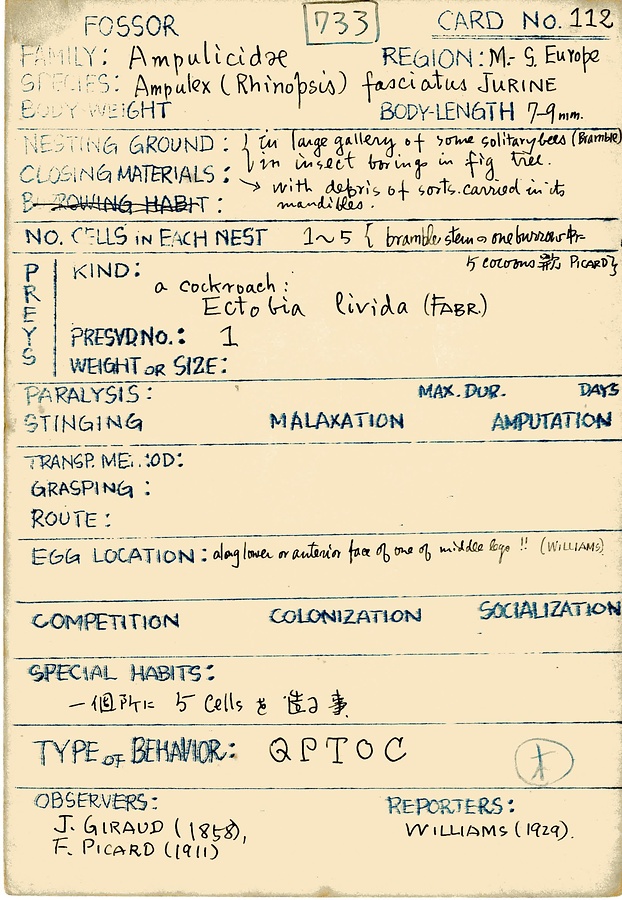 FOSSOR 733 CARD NO. 112
FAMILY: Ampulicidæ REGION: M.- S. Europe
SPECIES: Ampulex (Rhinopsis) fasciatus JURINE
BODY-WEIGHT BODY-LENGTH 7-9 mm.
NESTING GROUND: { in large gallery of some solitary bees (Bramble)
in insect borings in fig tree.
CLOSING MATERIALS: → with debris of sorts carried in its
mandibles.
BURROWING HABIT:
NO. CELLS IN EACH NEST 1~5 { bramble stem one burrow
5 cocoons PICARD}
PREYS
KIND:
a cockroach:
Ectobia livida (FABR.)
PRESVD NO.: 1
WEIGHT OR SIZE:
PARALYSIS: MAX. DUR. DAYS
STINGING MALAXATION AMPUTATION
TRANSP. METHOD:
GRASPING:
ROUTE:
EGG LOCATION: along lower or anterior face of one of middle legs !! (WILLIAMS)
COMPETITION COLONIZATION SOCIALIZATION
SPECIAL HABITS:
一個所に 5 cells を造る事
TYPE OF BEHAVIOR: QPTOC
OBSERVERS: REPORTERS:
J. GIRAUD (1858), WILLIAMS (1929).
F. PICARD (1911)